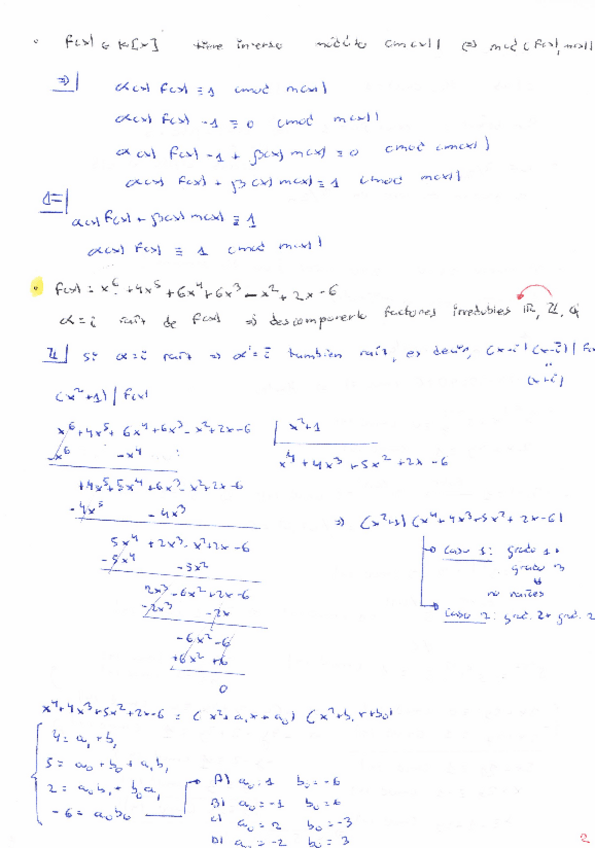 · f(x) ∈ K[x] tiene inverso módulo (m(x)) ⇔ mcd(f(x), m(x))
⇒| α(x) f(x) ≡ 1 (mod m(x))
α(x) f(x) - 1 ≡ 0 (mod m(x))
α(x) f(x) - 1 + β(x) m(x) ≡ 0 (mod (m(x))
α(x) f(x) + β(x) m(x) ≡ 1 (mod m(x))
⇐|
α(x) f(x) + β(x) m(x) ≡ 1
α(x) f(x) ≡ 1 (mod m(x))
· f(x) = x⁶ + 4x⁵ + 6x⁴ + 6x³ - x² + 2x - 6
α = i raíz de f(x) ⇒ descomponerlo factores irreducibles ℝ, ℤ, ℚ
ℤ| Si α = i raíz ⇒ ᾱ = ī también raíz, es decir, (x-i)(x-ī) | f(x)
(x+i)
(x²+1) | f(x)
x⁶+4x⁵+6x⁴+6x³-x²+2x-6 | x²+1
-x⁶ -x⁴ x⁴+4x³+5x²+2x-6
+4x⁵+5x⁴+6x³-x²+2x-6
-4x⁵ -4x³ ⇒ (x²+1)(x⁴+4x³+5x²+2x-6)
5x⁴+2x³-x²+2x-6
-5x⁴ -5x²
2x³-6x²+2x-6
-2x³ -2x
-6x²-6
+6x²+6
0
Caso 1: grado 1 +
grado 3
no raíces
Caso 2: grad. 2 + grad. 2
x⁴+4x³+5x²+2x-6 = (x²+a₁x+a₀)(x²+b₁x+b₀)
4 = a₁+b₁
5 = a₀+b₀+a₁b₁
2 = a₀b₁+b₀a₁
-6 = a₀b₀
A) a₀=1 b₀=-6
B) a₀=-1 b₀=6
C) a₀=2 b₀=-3
D) a₀=-2 b₀=3
2